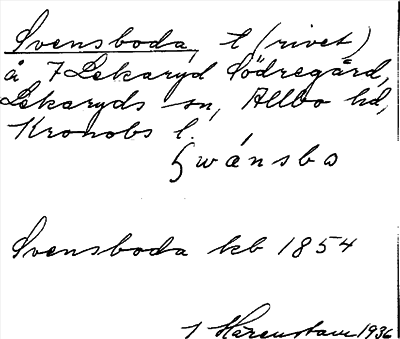 Svensboda, t (rivet)
å 7 Lekaryd Södregård,
Lekaryds sn, Allbo hd,
Kronobs l.
Swánsbo
Svensboda kb 1854
J Härenstam 1936